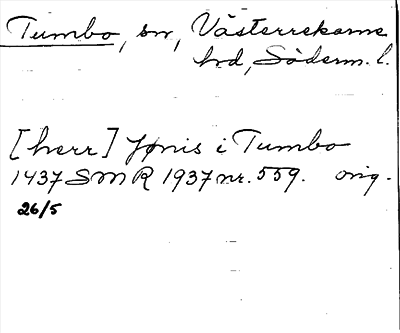 Tumbo, sn, Västerrekarne
hd, Söderm. l.
[herr] Jønis i Tumbo
1437 SMR 1937 nr. 559. orig.
26/5